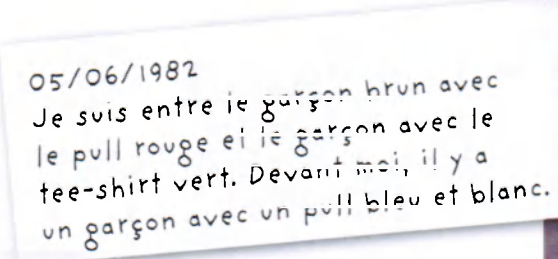 05/06/1982
Je suis entre le garçon brun avec
le pull rouge et le garçon avec le
tee-shirt vert. Devant moi, il y a
un garçon avec un pull bleu et blanc.